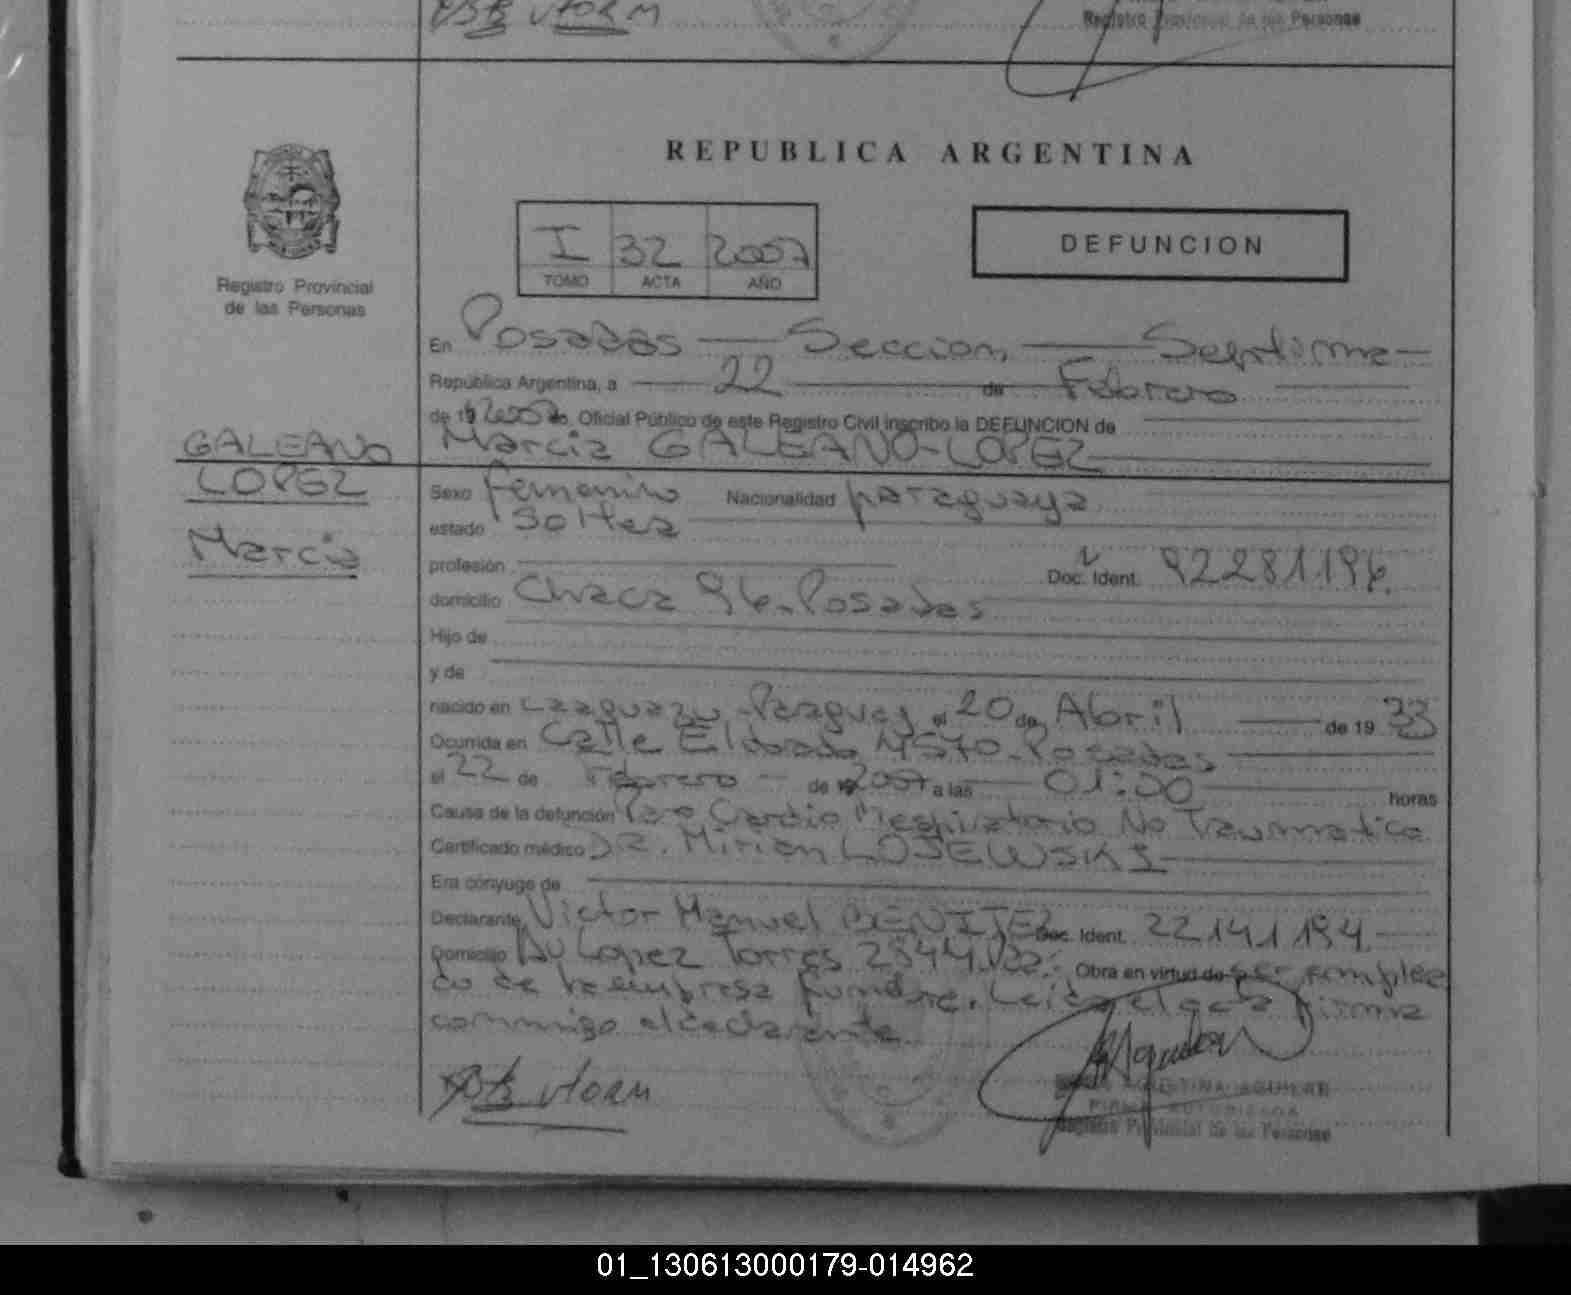 Registro Provincial de las Personas
REPUBLICA ARGENTINA
I 32 2007
TOMO ACTA AÑO
DEFUNCION
Registro Provincial
de las Personas
En Posadas — Seccion, — Septima —
República Argentina, a — 22 — de Febrero —
de 19 2007 yo, Oficial Público de este Registro Civil inscribo la DEFUNCION de
GALEANO
LOPEZ
Marcia
Marcia GALEANO-LOPEZ
Sexo femenino Nacionalidad paraguaya
estado Soltera
profesión — Doc. Ident. 92281.196.
domicilio Chaca 96-Posadas
Hijo de —
y de —
nacido en Caaguazu-Paraguay el 20 de Abril — de 19 33
Ocurrida en Calle Eldorado 4570-Posadas —
el 22 de Febrero — de 19 2007 a las — 01:00 — horas
Causa de la defunción Paro Cardio Respiratorio No Traumatico
Certificado médico Dra. Mirian LOJEWSKI —
Era cónyuge de —
Declarante Victor Manuel BENITEZ Doc. Ident. 22.141.194.—
Domicilio Av Lopez Torres 2544. Obra en virtud de ser emplea
do de la empresa funebre. Leida el acta firma
conmigo el declarante.
AGUILAR
FIRMA AUTORIZADA
Registro Provincial de las Personas
01_130613000179-014962